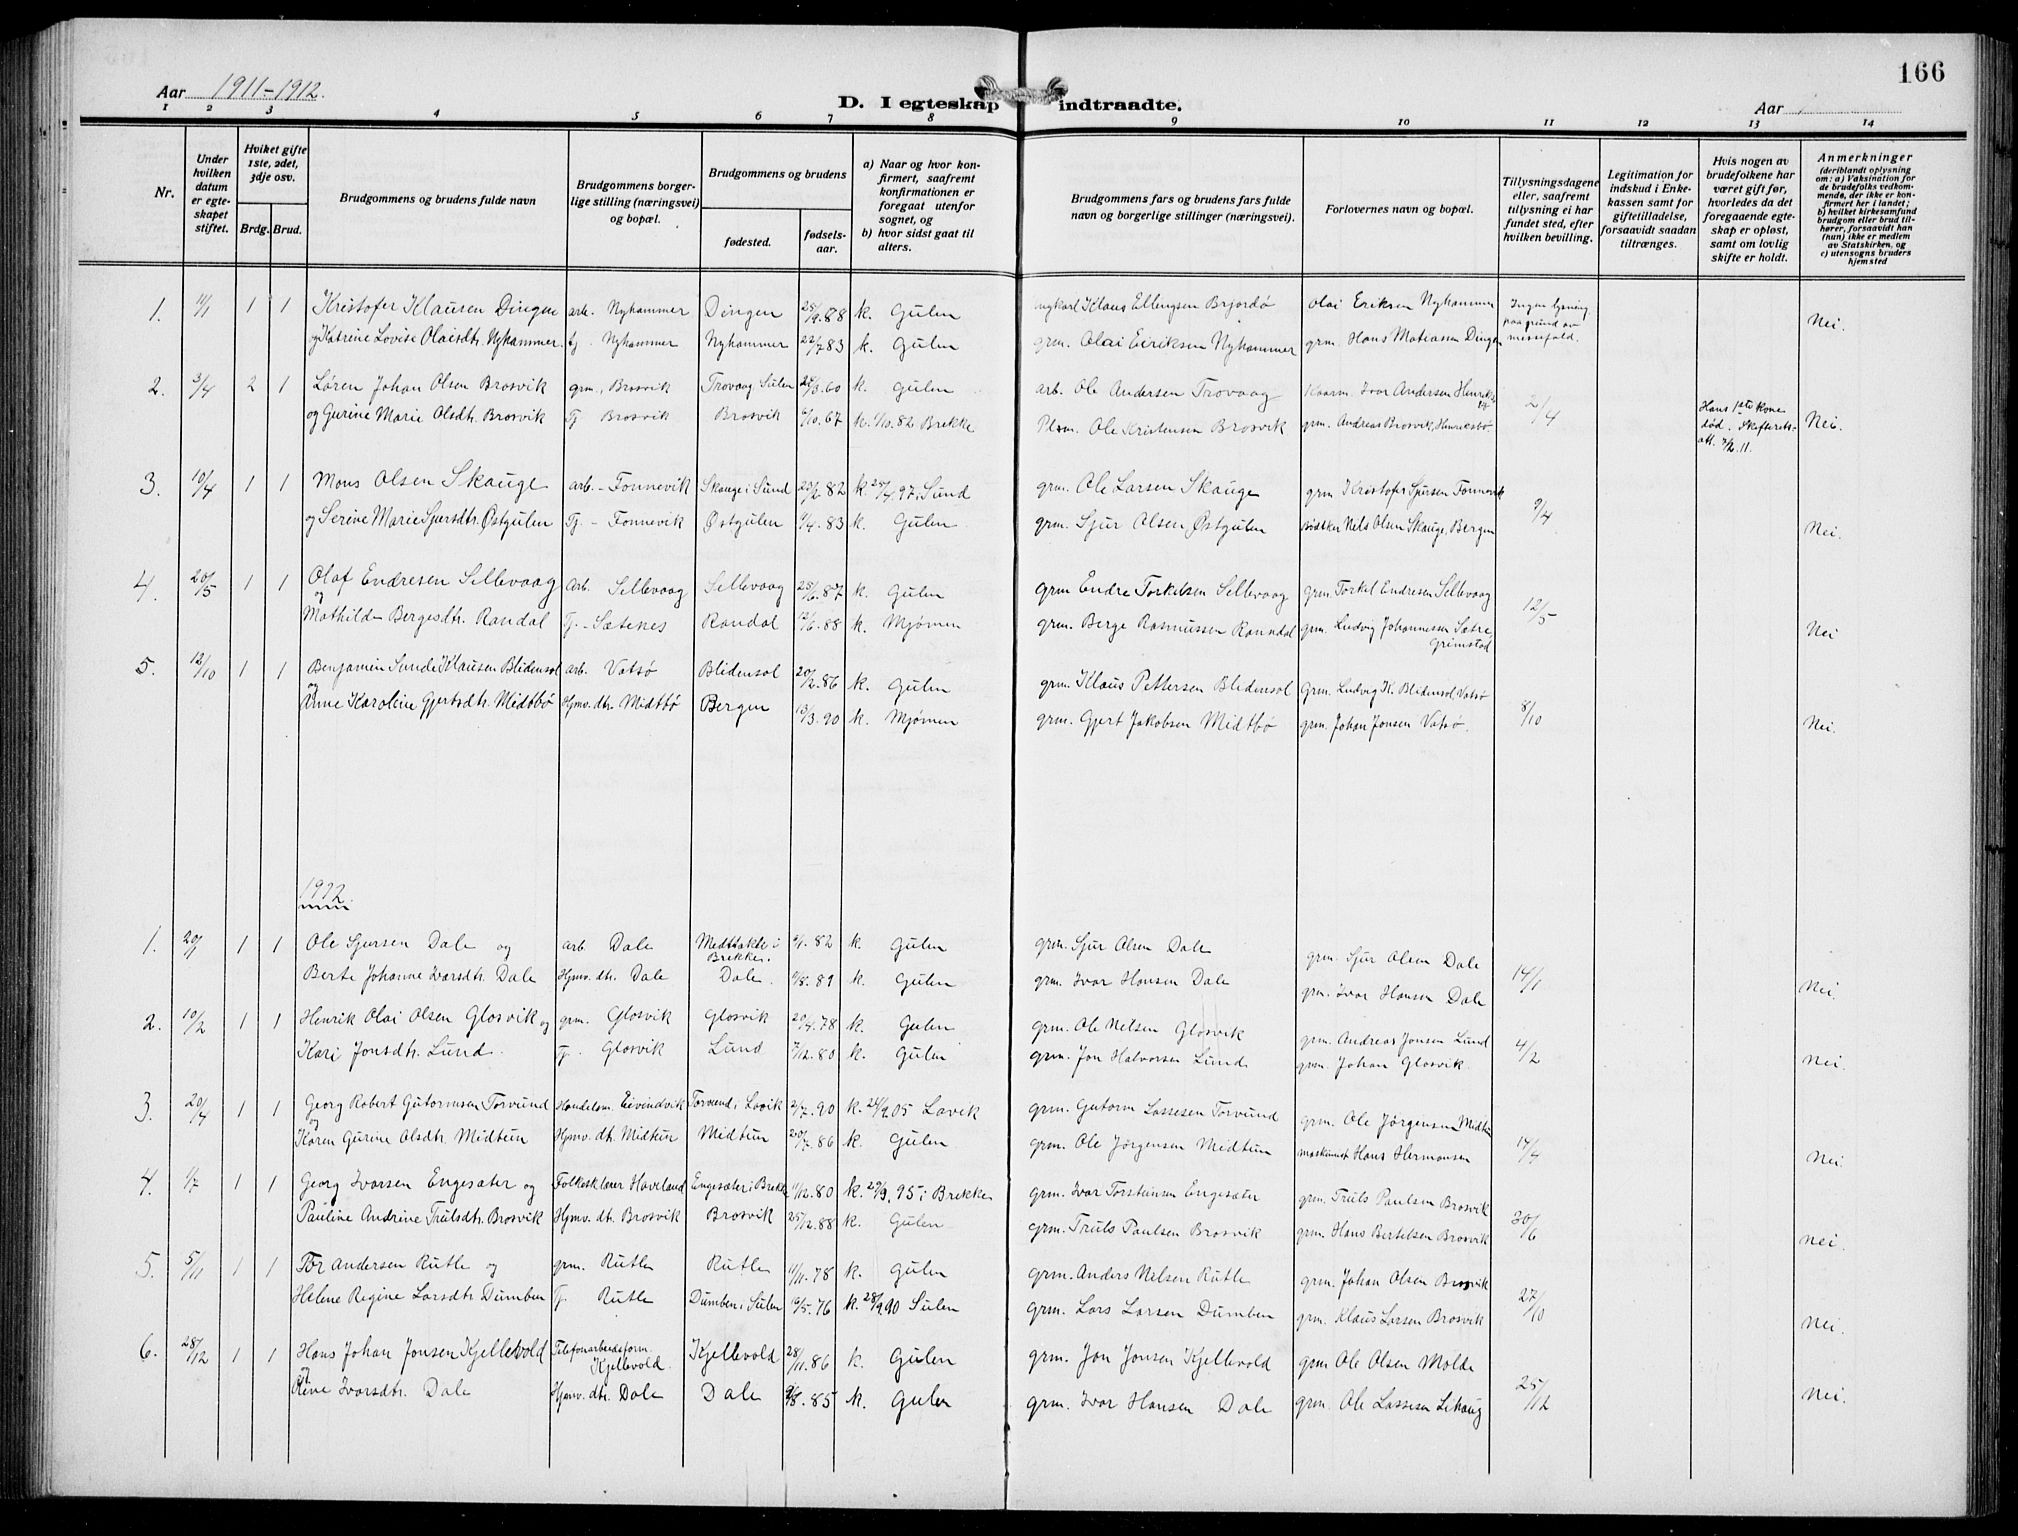 166
Aar 1911-1912.
D. I egteskap indtraadte.
Aar
1 2 3 4 5 6 7 8 9 10 11 12 13 14
Nr.
Under hvilken datum er egteskapet stiftet.
Hviket gifte 1ste, 2det, 3dje osv.
Brdg. Brud.
Brudgommens og brudens fulde navn
Brudgommens borgerlige stilling (næringsvei) og bopæl.
Brudgommens og brudens
fødested.
fødselsaar.
a) Naar og hvor konfirmert, saafremt konfirmationen er foregaat utenfor sognet, og
b) hvor sidst gaat til alters.
Brudgommens fars og brudens fars fulde navn og borgerlige stillinger (næringsvei).
Forlovernes navn og bopæl.
Tillysningsdagene eller, saafremt tillysning ei har fundet sted, efter hvilken bevilling.
Legitimation for indskud i Enkekassen samt for giftetilladelse, forsaavidt saadan tiltrænges.
Hvis nogen av brudefolkene har været gift før, hvorledes da det foregaaende egteskap er opløst, samt om lovlig skifte er holdt.
Anmerkninger (deriblandt oplysning om: a) Vaksination for de brudefolks vedkommende, der ikke er konfirmert her i landet; b) hvilket kirkesamfund brudgom eller brud tilhører, forsaavidt han (hun) ikke er medlem av Statskirken, og c) utensogns bruders hjemsted
1. 11/1 1 1 Kristofer Klausen Dingen arb. Nyhammer Dingen 28/9.88 k. Gulen ungkarl Klaus Ellingsen Brjordø Olai Eriksen Nyhammer Ingen lysning paa grund av messefald. Nei.
og Katrine Lovise Olaisdtr. Nyhammer. tj. Nyhammer Nyhammer 22/7 83 k. Gulen grm. Olai Eiriksen Nyhammer grm. Hans Matiassen Dingen
2. 3/4 2 1 Søren Johan Olsen Brosvik grm., Brosvik Trovaag Sulen 25/3.60 k. Gulen arb. Ole Andersen Trovaag Kaarm. Ivar Andersen Henriksbø 2/4 Hans 1ste kone død. Skifterets att. 3/2.11. Nei.
og Gurine Marie Olsdtr. Brosvik Tj. Brosvik Brosvik 6/10.67 k. 1/10.82 Brekke Plsm. Ole Kristensen Brosvik grm. Andreas Brosvik, Henriksbø
3. 10/4 1 1 Mons Olsen Skauge arb. - Fonnevik Skauge i Sund 23/2.82 k. 25/4.97. Sund grm. Ole Larsen Skauge grm Kristofer Sjursen Fonnevik 9/4 Nei.
og Serine Marie Sjursdtr. Østgulen Tj. - Fonnevik Østgulen 1/4.83 k. Gulen grm. Sjur Olsen Østgulen bødtker Nels Olsen Skauge, Bergen
4. 20/5 1 1 Olaf Endresen Sellevaag Arb. Sellevaag Sellevaag 25/6.87 k. Gulen grm Endre Torkelsen Sellevaag grm. Torkel Endresen Sellevaag 12/5 Nei
og Mathilde Bergesdtr. Randal Tj. - Sætenes Randal 12/6.88 k. Mjømen grm. Berge Rasmussen Ranndal grm. Ludvig Johannessen Sætre, Grimstad
5. 12/10 1 1 Benjamin Sunde Klausen Blidensol arb. Vatsø Blidensol 20/2.86 k. Gulen grm. Klaus Pettersen Blidensol Grm. Ludvig K. Blidensol Vatsø 8/10 Nei.
og Anne Karoline Gjertsdtr. Midtbø Hjmv. dtr. Midtbø Bergen 13/3.90 k. Mjømen grm. Gjert Jakobsen Midtbø grm. Johan Jonsen Vatsø.
1912.
1. 20/1 1 1 Ole Sjursen Dale og arb. Dale Medttakle i Brekke. 6/1.82 k Gulen grm. Sjur Olsen Dale grm. Sjur Olsen Dale 14/1 Nei.
Berte Johanne Ivarsdtr. Dale Hjmv. dtr. Dale Dale. 11/8.89 k. Gulen grm. Ivar Hansen Dale grm. Ivar Hansen Dale
2. 10/2 1 1 Henrik Olai Olsen Glosvik og grm. Glosvik Glosvik 20/4.78 k. Gulen grm. Ole Nelsen Glosvik grm. Andreas Jonsen Lund 4/2 Nei.
Kari Jonsdtr. Lund. Tj. Glosvik Lund 7/12.80 k. Gulen grm. Jon Halvorsen Lund grm. Johan Glosvik.
3. 20/4 1 1 Georg Robert Gutormsen Torvund Handelsm. Eivindvik Torvund i Lavik 2/7.90 k. 24/9.05 Lavik grm. Gutorm Lassesen Torvund grm. Ole Jørgensen Midtun 14/4 Nei.
og Karen Gurine Olsdtr. Midtun Hjmv. dtr. Midtun Midtun 20/7.86 k. Gulen grm. Ole Jørgensen Midtun maskinist Hans Hermansen
4. 1/7 1 1 Georg Ivarsen Engesæter og Folkesklærer Haveland Engesæter i Brekke 11/12.80 k. 29/9.95 i Brekke grm. Ivar Torsteinsen Engesæter grm. Truls Paulsen Brosvik 30/6 Nei.
Pauline Andrine Trulsdtr. Brosvik Hjmv. dtr. Brosvik Brosvik 25/12.88 k. Gulen grm. Truls Paulsen Brosvik grm. Hans Bertelsen Brosvik
5. 5/11 1 1 Tor Andersen Rutle og grm. Rutle Rutle 11/11.78 k. Gulen grm. Anders Nilsen Rutle grm. Johan Olsen Brosvik 27/10 Nei.
Helene Regine Larsdtr. Dumben Tj. Rutle Dumben i Sulen 10/5.76 k. 28/9.90 Sulen grm. Lars Larsen Dumben grm. Klaus Larsen Brosvik
6. 28/12 1 1 Hans Johan Jonsen Kjellevold Telefonarbeidsform. Kjellevold. Kjellevold 28/11.86 k. Gulen grm. Jon Jonsen Kjellevold grm. Ole Olsen Molde 25/12 Nei.
og Line Ivarsdtr. Dale Hjmv. dtr. Dale Dale 9/8.85 k. Gulen grm. Ivar Hansen Dale grm. Ole Lassesen Lihaug